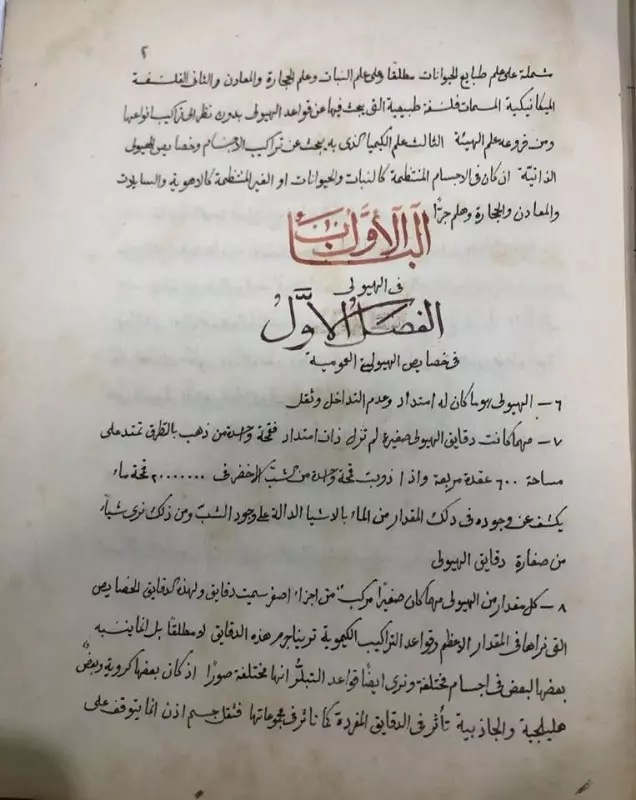 ٢
شملة على علم طبايع الحيوانات مطلقًا وعلى علم النبات وعلم الحجارة والمعادن والثانى الفلسفة
الميكانيكية المسمات فلسفة طبيعية التى يبحث فيها عن قواعد الهيولى بدون نظر الى تراكيب انواعها
ومن فروعه علم الهيئة الثالث علم الكيميا الذى به يبحث عن تراكيب الاجسام وخصايص الهيولى
الذاتيّة ان كان فى الاجسام المنتظمة كالنبات والحيوانات او الغير المنتظمة كالاهوية والسايلات
والمعادن والحجارة وهلم جرّا
الباب الأوَّل
فى الهيولى
الفصل الاوَّل
فى خصايص الهيولى العمومية
٦ – الهيولى هو ما كان له امتداد وعدم التداخل وثقل
٧ – مهما كانت دقايق الهيولى صغيرة لم تزل ذات امتداد فقمحة واحدة من ذهب بالتطرق تمتد على
مساحة ٦٠٠ عقدة مربعة واذا ذوبت قمحة واحدة من شبّ الاخضر فى ٢٠٠٠٠٠٠٠ قمحة ماء
يكشف عن وجوده فى ذلك المقدار من الماء بالاشيا الدالة على وجود الشبّ ومن ذلك نرى شياءً
من صغارة دقايق الهيولى
٨ – كل مقدار من الهيولى مهما كان صغيرًا مركبٌ من اجزاء اصغر سميت دقايق ولهذه الدقايق الخصايص
التى نراها فى المقدار الاعظم وقواعد التراكيب الكيموية ترينا جرم هذه الدقايق لا مطلقًا بل انما بنسبة
بعضها البعض فى اجسام مختلفة ونرى ايضًا قواعد التبلُّر انها مختلفة صورًا اذ كان بعضها كروية وبعضٌ
هليلجية والجاذبية تأثر فى الدقايق المفردة كما تاثر فى مجموعاتها فثقل جسم اذن انما يتوقف على